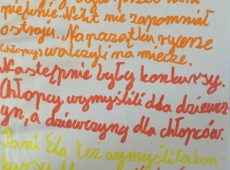 pięknie. Nikt nie zapomniał
stroju. Na początku rycerze
(chłopcy) walczyli na miecze.
Następnie były konkursy.
Chłopcy wymyślili dla dziewcz-
yn, a dziewczyny dla chłopców.
Pani Ela też wymyśliła kon-